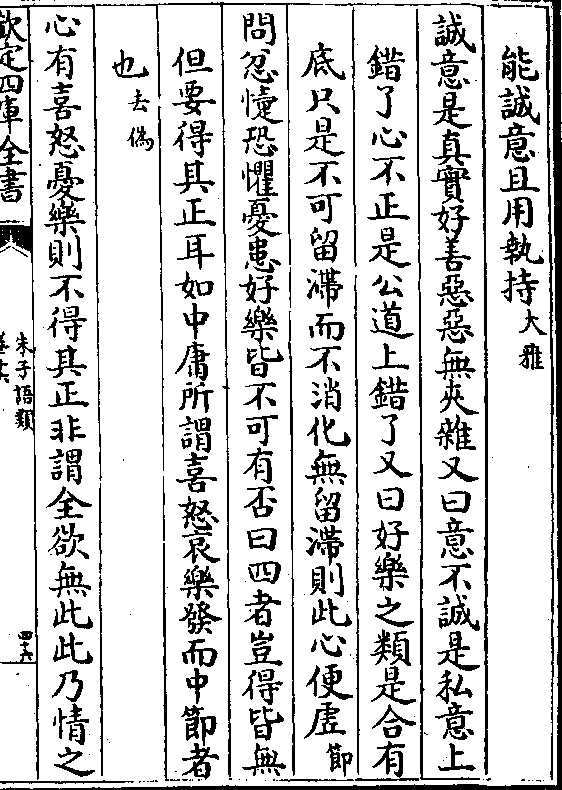 能誠意且用執持大雅
誠意是真實好善惡惡無夾雜又曰意不誠是私意上
錯了心不正是公道上錯了又曰好樂之類是合有
底只是不可留滯而不消化無留滯則此心便虛節
問忿懥恐懼憂患好樂皆不可有否曰四者豈得皆無
但要得其正耳如中庸所謂喜怒哀樂發而中節者
也去偽
心有喜怒憂樂則不得其正非謂全欲無此此乃情之
欽定四庫全書
朱子語類
卷十六
四十六